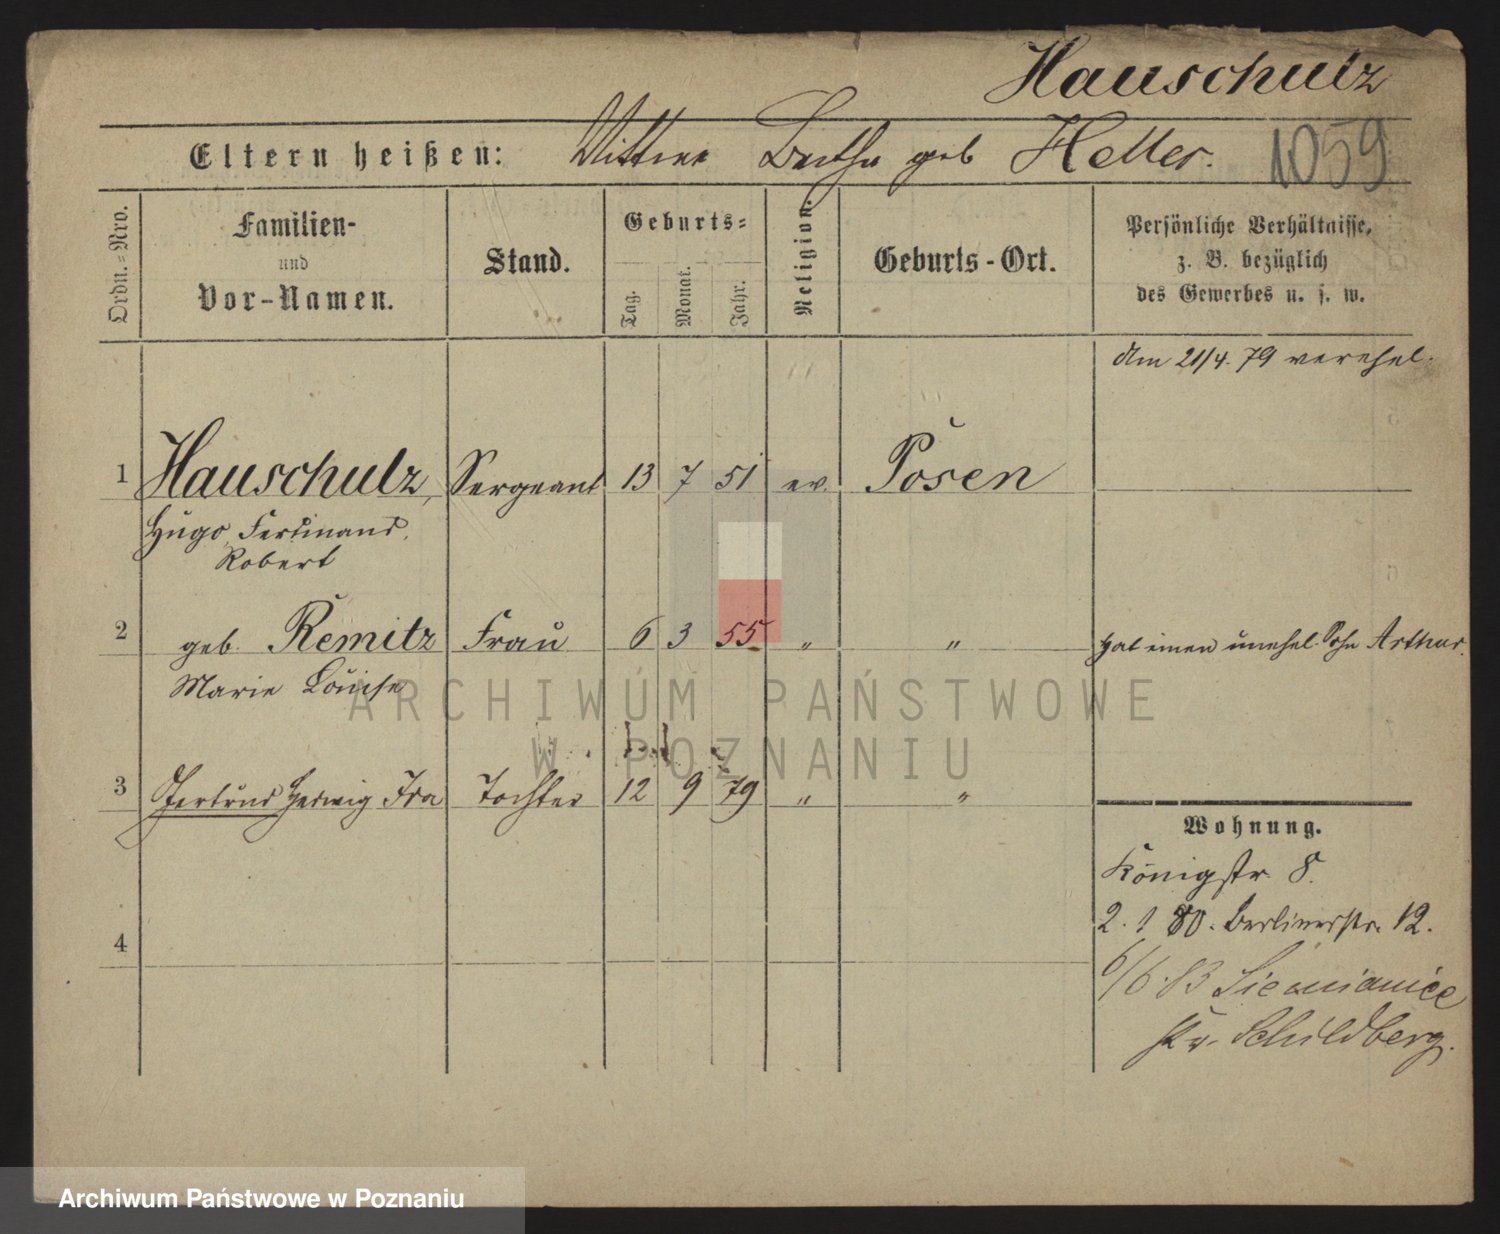 Hauschulz
Eltern heißen: Wittwe Bertha geb Heller. 1059
Ordn.=Nro.
Familien-
und
Vor-Namen.
Stand.
Geburts=
Tag.
Monat.
Jahr.
Religion.
Geburts-Ort.
Persönliche Verhältnisse,
z. B. bezüglich
des Gewerbes u. s. w.
Am 21/4. 79 verehel.
1 Hauschulz, Sergeant 13 7 51 ev. Posen
Hugo, Ferdinand,
Robert
2 geb. Remitz Frau 6 3 55 " " hat einen unehel. Sohn Arthur.
Marie Louise
3 Gertrud Hedwig Ida Tochter 12 9 79 " "
Wohnung.
Königstr. 8.
2. 1 80. Berlinerstr. 12.
4
6/6. 83 Siemianice
Kr. Schildberg.
ARCHIWUM PAŃSTWOWE
W POZNANIU
Archiwum Państwowe w Poznaniu